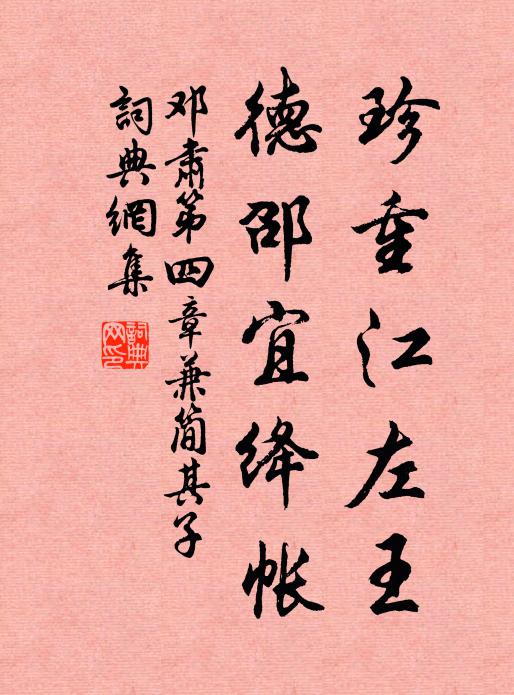 珍重江左王
德邵宜绛帐
邓肃第四章兼简其子
詞典網集
詞典网印